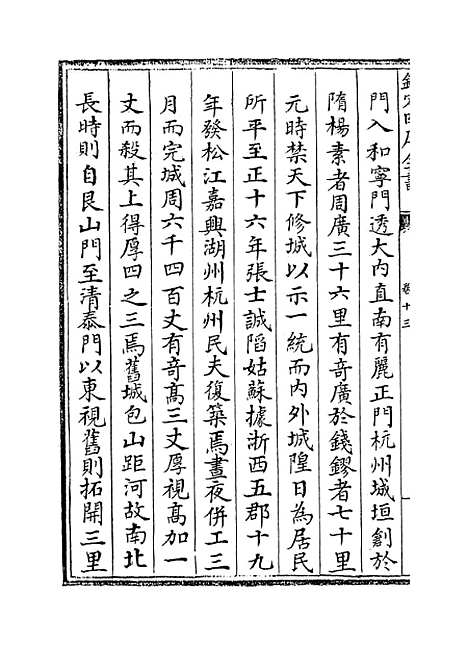 欽定四庫全書
卷十三
門入和寧門透大內直南有麗正門杭州城垣創於
隋楊素者周廣三十六里有奇廣於錢鏐者七十里
元時禁天下修城以示一統而內外城隍日為居民
所平至正十六年張士誠陷姑蘇據浙西五郡十九
年發松江嘉興湖州杭州民夫復築焉晝夜併工三
月而完城周六千四百丈有奇髙三丈厚視髙加一
丈而殺其上得厚四之三焉舊城包山距河故南北
長時則自艮山門至清泰門以東視舊則拓開三里